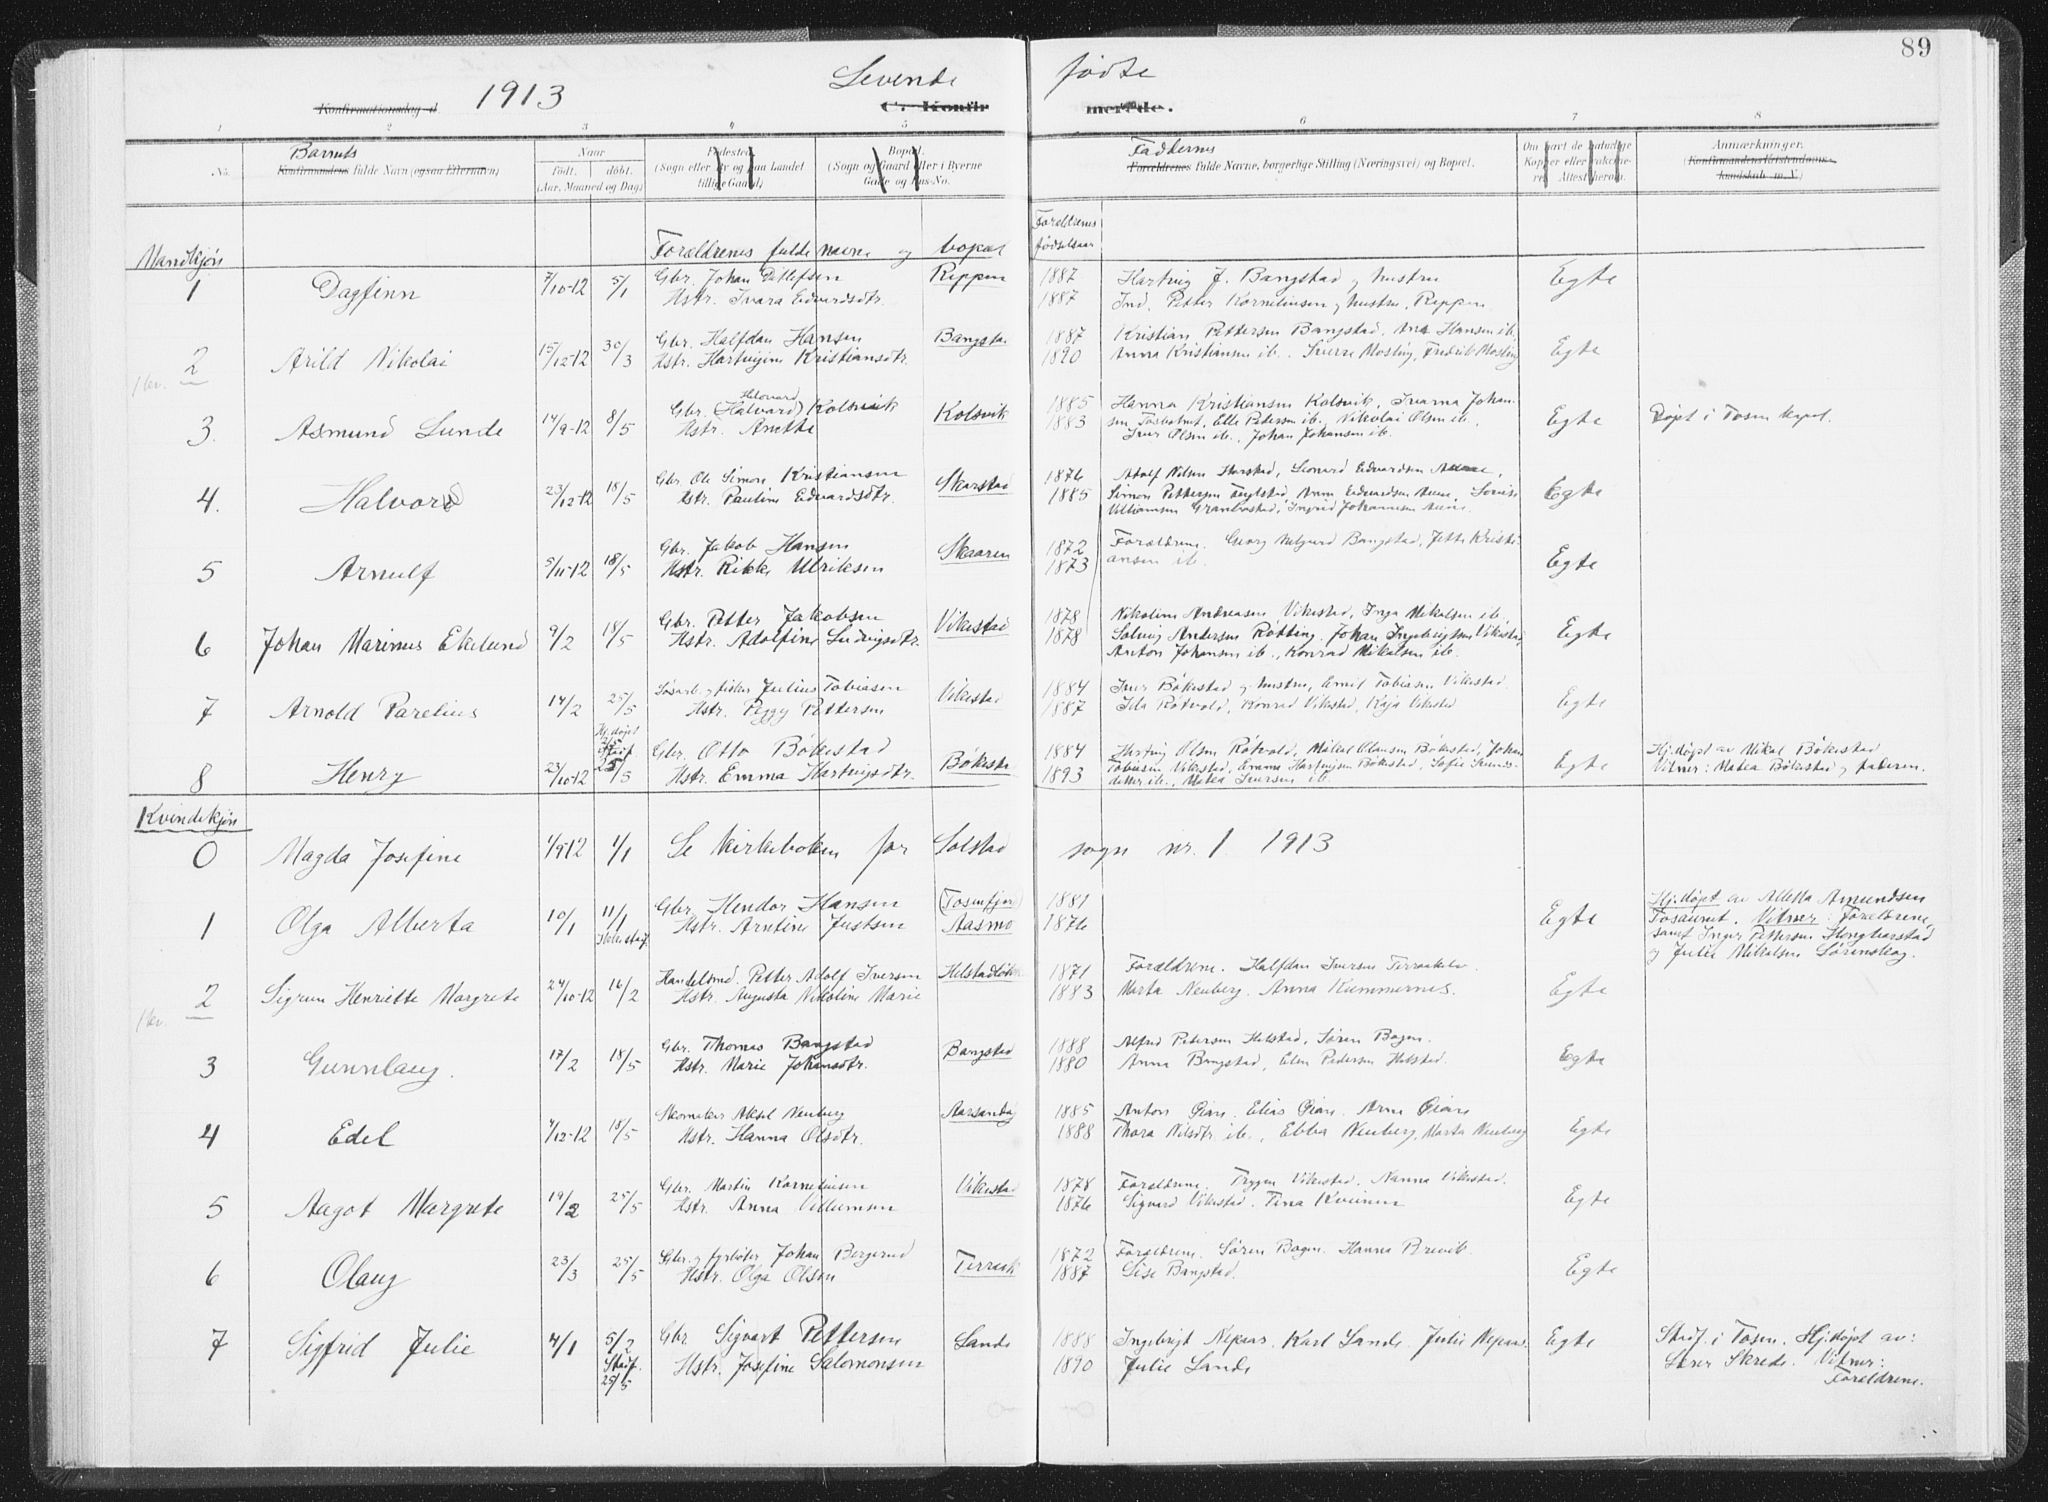 89
1913 Levende fødte
Konfirmationsdag d. C. Konfirmerede.
1 2 3 4 5 6 7 8
No.
Barnets
Konfirmandens fulde Navn (ogsaa Efternavn)
Naar
Født. døbt.
(Aar, Maaned og Dag)
Fødested
(Sogn eller By og paa Landet
tillige Gaard)
Bopæl.
(Sogn og Gaard eller i Byerne
Gade og Hus-No.
Faddernes
Forældrenes fulde Navne, borgerlige Stilling (Næringsvei) og Bopæl.
Om havt de naturlige
Kopper eller vakcine-
ret. Attest herom.
Anmærkninger.
(Konfirmandens Kristendoms-
kundskab m. V.)
Forældrenes
fødselsaar
Mandkjøn
Forældrenes fulde navne og bopæl
1 Dagfinn 7/10-12 5/1
Gbr. Johan Detlefsen
Hstr. Ivara Edvardsdtr.
Reppen
1887
1887
Hartvig J. Bangstad og hustru
Ind. Petter Kornelinsen og hustru, Reppen
Egte
2 Arild Nikolai 15/12-12 30/3
Gbr. Halfdan Hansen
Hstr. Hartvigine Kristiansdtr.
Bangsta
1887
1890
Kristian Pettersen Bangstad, Ane Hansen ib,
Anna Kristiansen ib. Sverre Mosling, Fredrik Mosling
Egte
1 kv.
3. Asmund Lunde 14/9-12 8/5
Gbr. (Halvard) Kolsvik
Hstr. Anette
Kolsvik
1885
1883
Hanna Kristiansen Kolsvik, Ivarna Johan-
sen, Tosbotnet, Elle Petersen ib., Nikolai Olsen ib.,
Iver Olsen ib., Johan Johansen ib.
Egte
Døpt i Tosen kapel.
4. Halvord 23/12-12 18/5
Gbr. Ole Simon Kristiansen
Hstr. Pauline Edvardsdtr.
Skarstad
1876
1885
Adolf Nilsen Harstad, Leonard Edvardsen Aune,
Simon Pettersen, Anna Edvardsen Aune, Lovise
Villiamsen, Ingrid Johannesen Aune.
Egte
5 Arnulf 5/11-12 18/5
Gbr. Jakob Hansen
Hstr. Rikke Ulriksen
Skaaren
1872
1873
Forældrene. Georg Bangstad, Jette Kristi-
ansen ib.
Egte
6 Johan Marinus Ekelund 9/2 18/5
Gbr. Petter Jakobsen
Hstr. Adolfine Ludvigsdtr.
Vikestad
1878
1878
Nikoline Andreasen Vikestad, Inga Mikalsen ib,
Solveig Andersen Røtting. Johan Ingebrigtsen Vikestad,
Anton Johansen ib., Konrad Mikalsen ib.
Egte
7 Arnold Parelius 14/2 25/5
Løsarb. og fisker Julius Tobiasen
Hstr. Peggy Pettersen
Vikestad
1884
1887
Iver Bøkestad og hustru, Emil Tobiasen Vikestad.
Ida Røtvold, Konrad Vikestad, Kaja Vikestad
Egte
8 Henry 23/10-12 Hj.døpt
Stadf.
25/5
Gbr. Otto Bøkestad
Hstr. Emma Hartvigsdtr.
Bøkesta
1884
1893
Hartvig Olsen Røtvold, Mikal Olausen Bøkestad, Johan
Tobiasen Vikestad, Emma Hartvigsen Bøkestad, Sofie
datter ib., Matea Iversen ib
Egte
Hj.døpt av Mikal Bøkestad
Vitner: Matea Bøkestad og faderen.
Kvindekjøn
0 Magda Josefine 1/9 12 1/1 Se kirkeboken for Solstad sogn nr. 1 1913
1 Olga Alberta 10/1 11/1
Gbr. Hendor Hansen
Hstr. Arntine Justsen
(Tosenfjord)
Aasmo
1881
1876
Egte
Hj.døpt av Alletta Amundsen
Tosaunet. Vitner: Forældrene,
samt Inger Pettersen
og Julie Mikalsen Sørenskog.
2 Sigrun Henriette Margrete 24/10-12 16/2
Handelsmd. Petter Adolf Iversen
Hstr. Augusta Nikoline Marie
1871
1883
Forældrene. Halfdan Iversen Terraak
Marta Neuberg. Anna Kummernes.
Egte
1 kv.
3 Gunnlaug. 17/2 18/5
Gbr. Thomas Bangstad
Hstr. Marie Johansdtr.
Bangstad
1888
1880
Alfred Petersen Helstad, Søren Bogen.
Anna Bangstad, Elen Petersen Helstad.
Egte
4 Edel 7/12-12 18/5
Skomaker Aksel Neuberg
Hstr. Hanna Olsdtr.
Aarsandøy
1885
1888
Anton Gian. Elias Gian. Arne Gian
Thora Nilsdtr ib., Ebba Neuberg, Marta Neuberg
Egte
5 Aagot Margrete 19/2 25/5
Gbr. Martin Kornelinsen
Hstr. Anna Villumsen
Vikestad
1878
1876
Forældrene. Trygve Vikestad. Nanna Vikestad.
Sigvard Vikestad. Tina Kveinen
Egte
6 Olaug 23/3 25/5
Gbr. og fyrbøter Johan Bergerud
Hstr. Olga Olsen
Terraak
1872
1887
Forældrene. Søren Bogen. Hanna Brevik.
Lise Bangstad.
Egte
7 Sigfrid Julie 4/1 5/2
Stadf.
25/5
Gbr Sigvart Pettersen
Hstr. Josefine Salomonsen
Lande
1888
1890
Ingebrigt Nepaas. Karl Lande. Julie Nepaas.
Julie Lande
Egte
Stadf. i Tosen. Hj.døpt av:
Skrede. Vitner:
Forældrene.